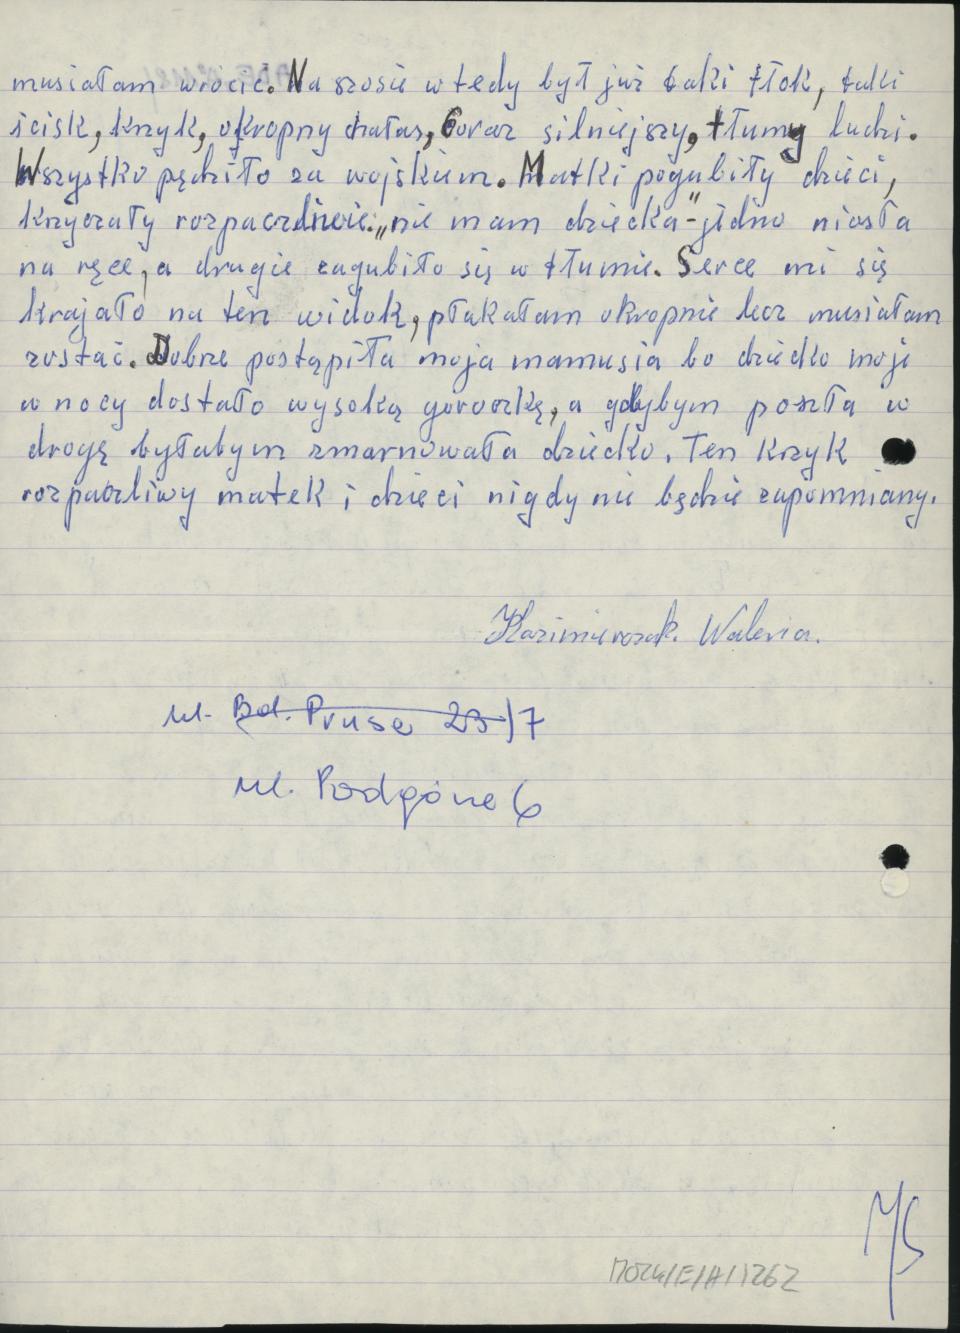 musiałam wrócić. Na szosie wtedy był już taki tłok, taki
ścisk, krzyk, okropny hałas, coraz silniejszy, tłumy ludzi.
Wszystko pędziło za wojskiem. Matki pogubiły dzieci,
krzyczały rozpaczliwie: „nie mam dziecka" - jedno niosła
na ręce, a drugie zagubiło się w tłumie. Serce mi się
krajało na ten widok, płakałam okropnie lecz musiałam
zostać. Dobrze postąpiła moja mamusia bo dziecko moje
w nocy dostało wysoką gorączkę, a gdybym poszła w
drogę byłabym zmarnowała dziecko. Ten krzyk
rozpaczliwy matek i dzieci nigdy nie będzie zapomniany.
Kazimierczak Waleria.
ul. Bol. Prusa 23/7
ul. Podgórze 6
MOZK/E/A/1262